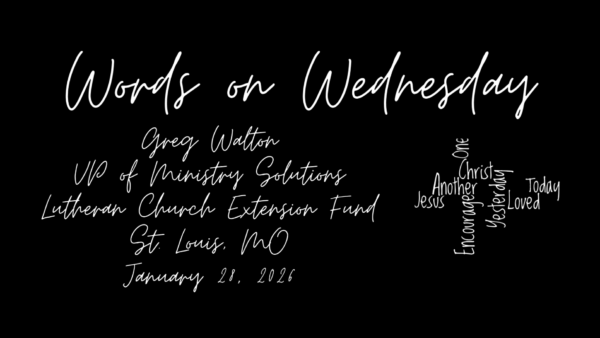 Words on Wednesday
Greg Walton
VP of Ministry Solutions
Lutheran Church Extension Fund
St. Louis, MO
January 28, 2026
One
Christ
Another
Jesus
Encourage
Yesterday
Loved
Today